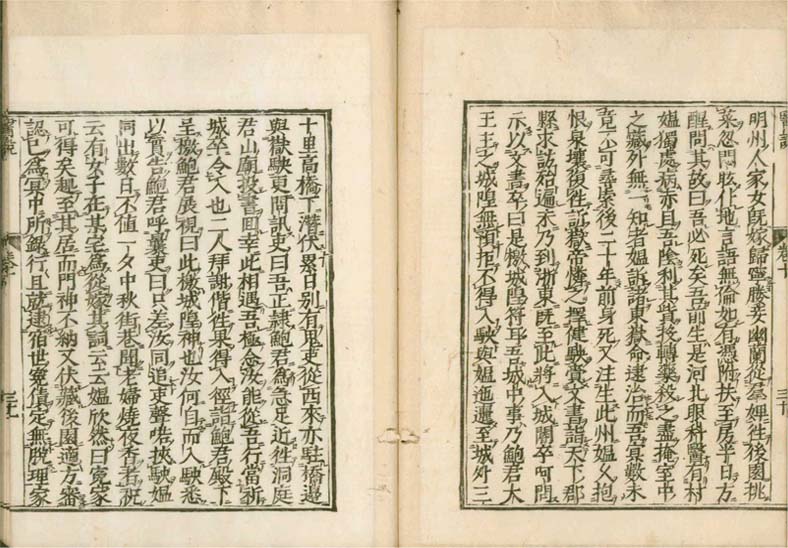 醫說
卷十
三十
明州人家女既嫁歸寧媵妾幽蘭從羣婢徃後園挑
菜忽悶眩仆地言語無倫如有憑附扶至房半日方
醒問其故曰吾必死矣吾前生是河北眼科醫有村
媼獨處病赤目吾陰利其貲投轉藥殺之盡掩室中
之藏外無一知者媼訴諸東嶽命逮治而吾冥數未
竟不可尋索後二十年前身死又注生此州媼久抱
恨泉壤復徃訴嶽帝憐之擇健駛賫文書詣天下郡
縣求訪殆遍末乃到浙東既至此將入城闉卒呵問
示以文書卒曰是檄城隍符耳吾城中事乃鮑君大
王主之城隍無預拒不得入駛與媼迤邐至城外三
十里高橋下潛伏累日别有鬼吏從西來亦駐橋邊
與嶽駛更問訊吏曰吾正隷鮑君為急足近徃洞庭
君山廟投書囬幸此相遇吾極念汝能從吾行當祈
城卒令入也二人拜謝偕徃果得入徑詣鮑君殿下
呈檄鮑君展視曰此檄城隍神也汝何自而入駛悉
以實告鮑君呼囊吏曰只差汝同追吏聲喏挾駛媼
同出數日不值一夕中秋街巷閧老婦燒夜香者祝
云有女子在某宅為從嫁其詞云云媼欣然曰寃家
可得矣趨至其居而門神不納又伏藏後園適方審
認已為冥中所録行且就逮宿世寃債定無脫理家
醫說
卷十
三十一